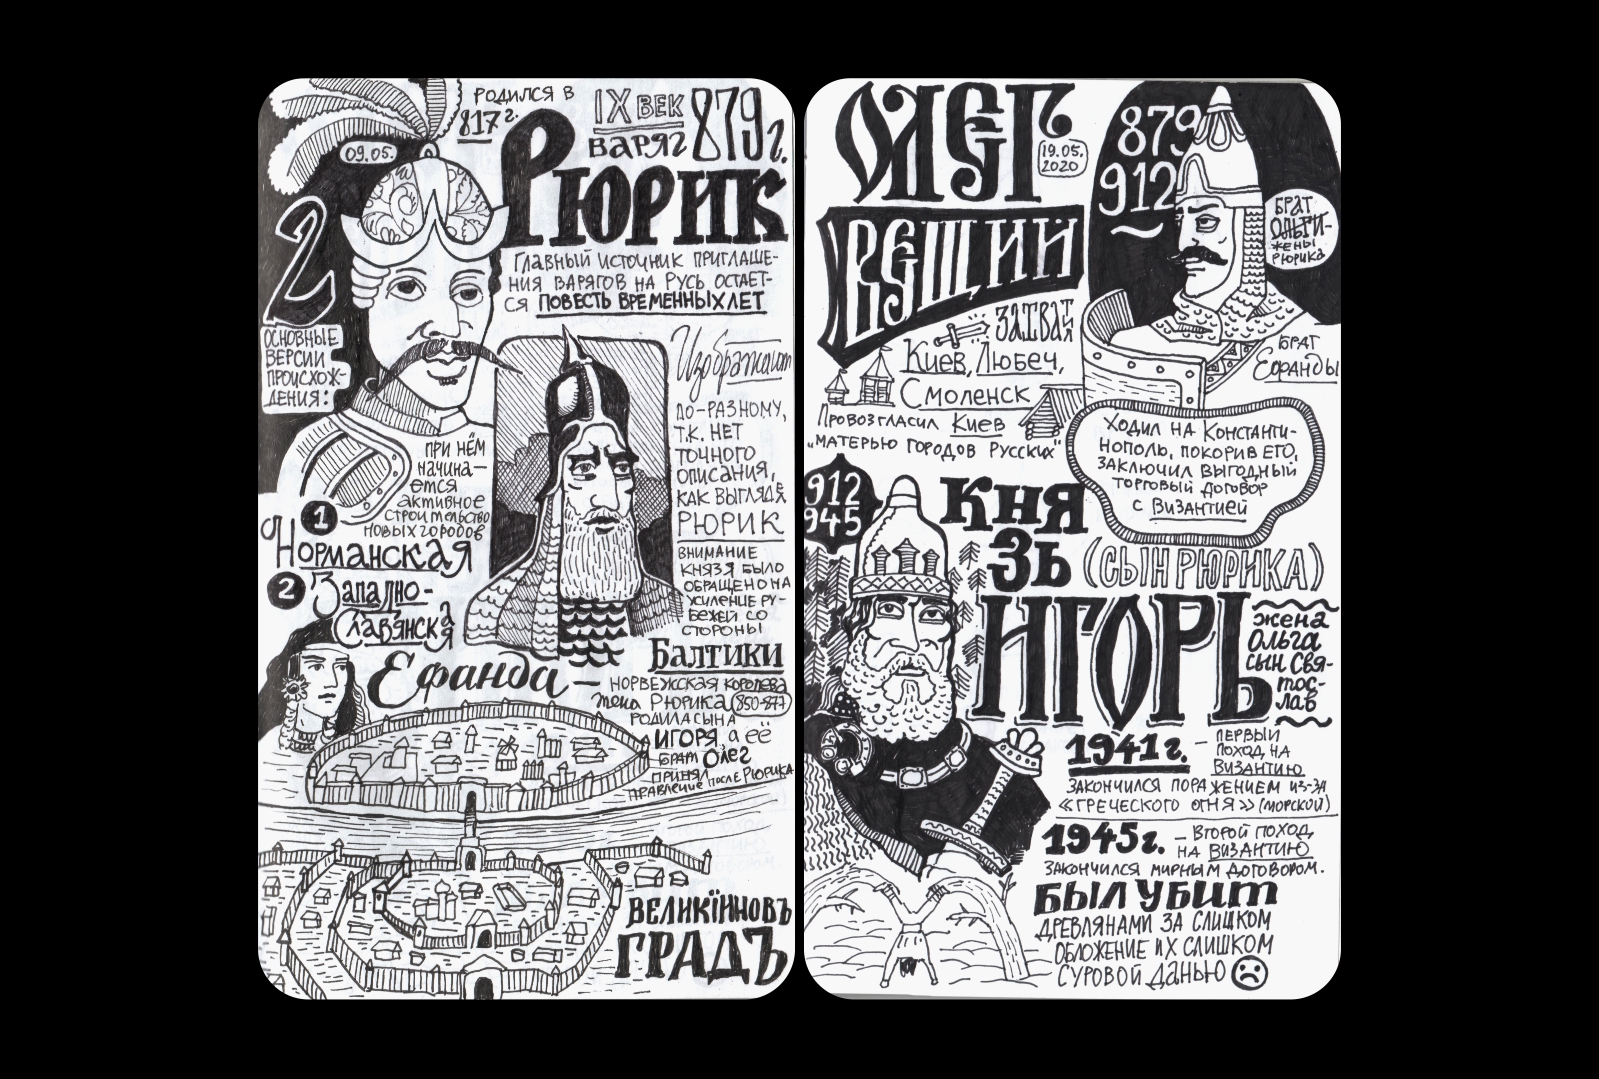 РОДИЛСЯ В
817 г.
IX ВЕК
ВАРЯГ
879 г.
09.05.
РЮРИК
ГЛАВНЫЙ ИСТОЧНИК ПРИГЛАШЕ-
НИЯ ВАРЯГОВ НА РУСЬ ОСТАЕТ-
СЯ ПОВЕСТЬ ВРЕМЕННЫХ ЛЕТ
2
ОСНОВНЫЕ
ВЕРСИИ
ПРОИСХОЖ-
ДЕНИЯ:
Изображают
ПО-РАЗНОМУ,
Т.К. НЕТ
ТОЧНОГО
ОПИСАНИЯ,
КАК ВЫГЛЯДЕЛ
РЮРИК
ПРИ НЁМ
НАЧИНА-
ЕТСЯ
АКТИВНОЕ
СТРОИТЕЛЬСТВО
НОВЫХ ГОРОДОВ
1
НОРМАНСКАЯ
2 ЗАПАДНО-
СЛАВЯНСКАЯ
ВНИМАНИЕ
КНЯЗЯ БЫЛО
ОБРАЩЕНО НА
УСИЛЕНИЕ РУ-
БЕЖЕЙ СО
СТОРОНЫ
БАЛТИКИ
Ефанда —
НОРВЕЖСКАЯ КОРОЛЕВА
жена РЮРИКА (850-877)
РОДИЛА СЫНА
ИГОРЯ, а её
БРАТ ОЛЕГ
ПРИНЯЛ
ПРАВЛЕНИЕ ПОСЛЕ РЮРИКА
ВЕЛИКIЙ НОВЪ
ГРАДЪ
ОЛЕГ
19.05.
2020
879
912
~
БРАТ
ОЛЬГИ-
ЖЕНЫ
РЮРИКА
ВЕЩИЙ
ЗАХВАТ
КИЕВ, ЛЮБЕЧ,
СМОЛЕНСК
ПРОВОЗГЛАСИЛ КИЕВ
„МАТЕРЬЮ ГОРОДОВ РУССКИХ"
БРАТ
ЕФАНДЫ
ХОДИЛ НА КОНСТАНТИ-
НОПОЛЬ, ПОКОРИВ ЕГО,
ЗАКЛЮЧИЛ ВЫГОДНЫЙ
ТОРГОВЫЙ ДОГОВОР
С ВИЗАНТИЕЙ
912
945
КНЯ
ЗЬ
(СЫН РЮРИКА)
ИГОРЬ
ЖЕНА
ОЛЬГА
СЫН СВЯ-
ТОС-
ЛАВ
1941 г. — ПЕРВЫЙ
ПОХОД НА
ВИЗАНТИЮ
ЗАКОНЧИЛСЯ ПОРАЖЕНИЕМ ИЗ-ЗА
«ГРЕЧЕСКОГО ОГНЯ» (МОРСКОЙ)
1945 г. — ВТОРОЙ ПОХОД
НА ВИЗАНТИЮ
ЗАКОНЧИЛСЯ МИРНЫМ ДОГОВОРОМ.
БЫЛ УБИТ
ДРЕВЛЯНАМИ ЗА СЛИШКОМ
ОБЛОЖЕНИЕ ИХ СЛИШКОМ
СУРОВОЙ ДАНЬЮ